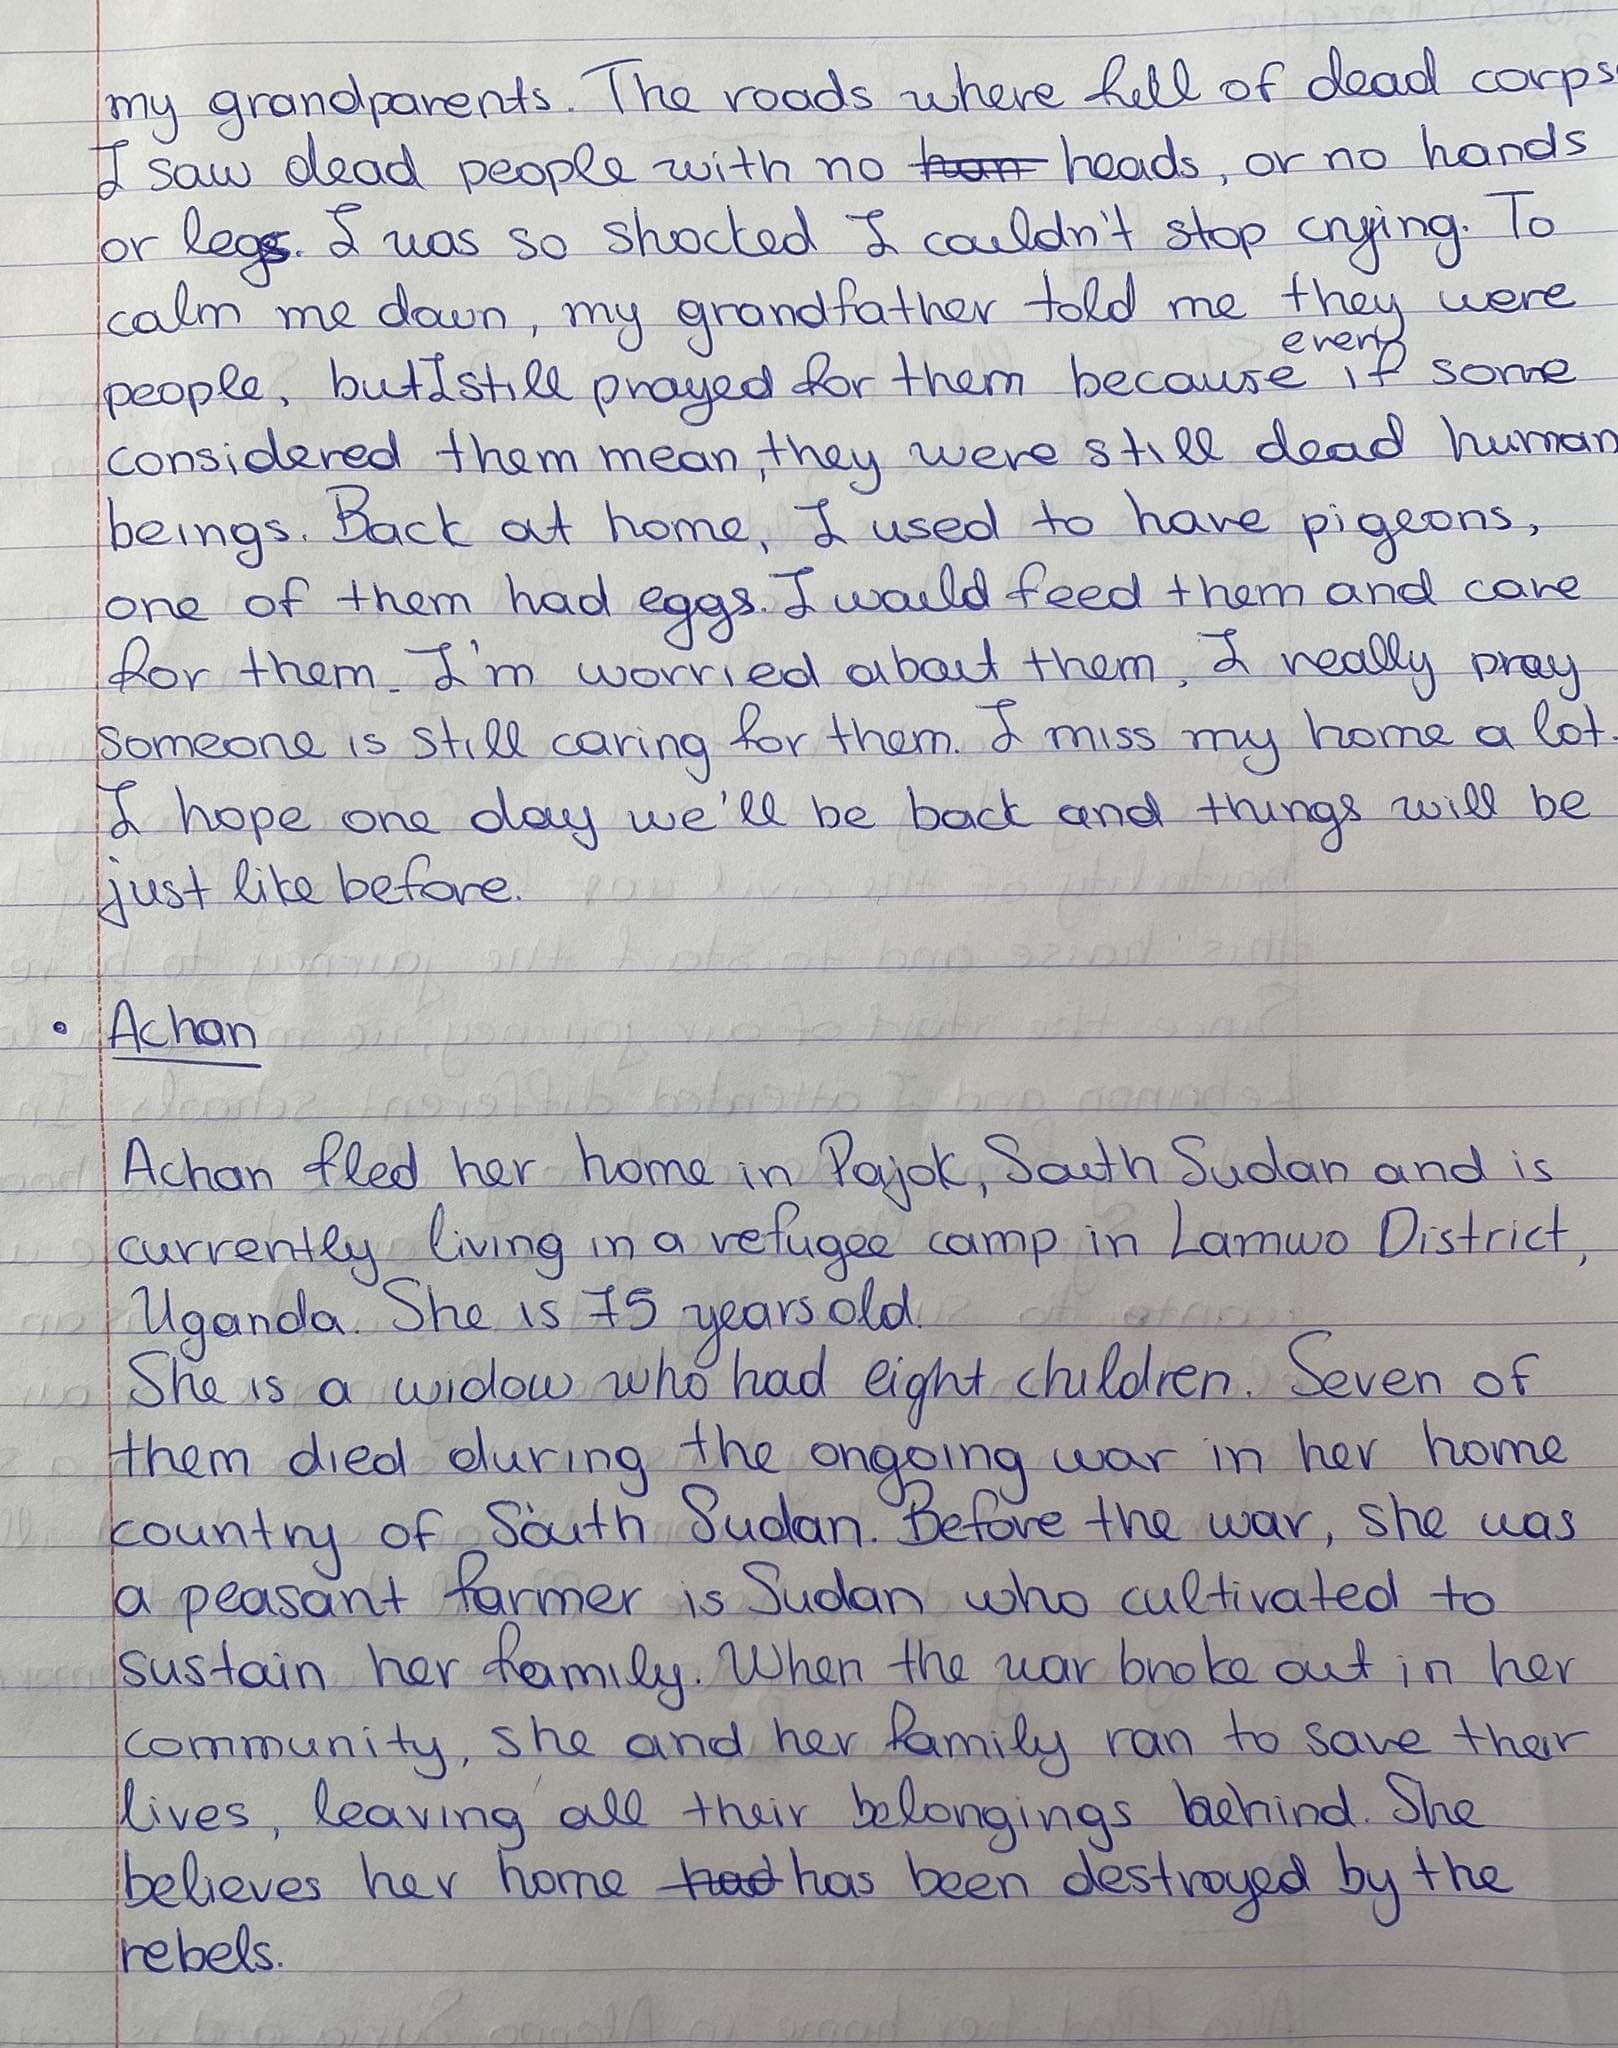 my grandparents. The roads where full of dead corps
I saw dead people with no han heads, or no hands
or legs. I was so shocked I couldn't stop crying. To
calm me down, my grandfather told me they were
people, but I still prayed for them because even if some
considered them mean, they were still dead human
beings. Back at home, I used to have pigeons,
one of them had eggs. I would feed them and care
for them. I'm worried about them, I really pray
someone is still caring for them. I miss my home a lot.
I hope one day we'll be back and things will be
just like before.
• Achan
Achan fled her home in Pajok, South Sudan and is
currently living in a refugee camp in Lamwo District,
Uganda. She is 75 years old.
She is a widow who had eight children. Seven of
them died during the ongoing war in her home
country of South Sudan. Before the war, she was
a peasant farmer is Sudan who cultivated to
sustain her family. When the war broke out in her
community, she and her family ran to save their
lives, leaving all their belongings behind. She
believes her home had has been destroyed by the
rebels.